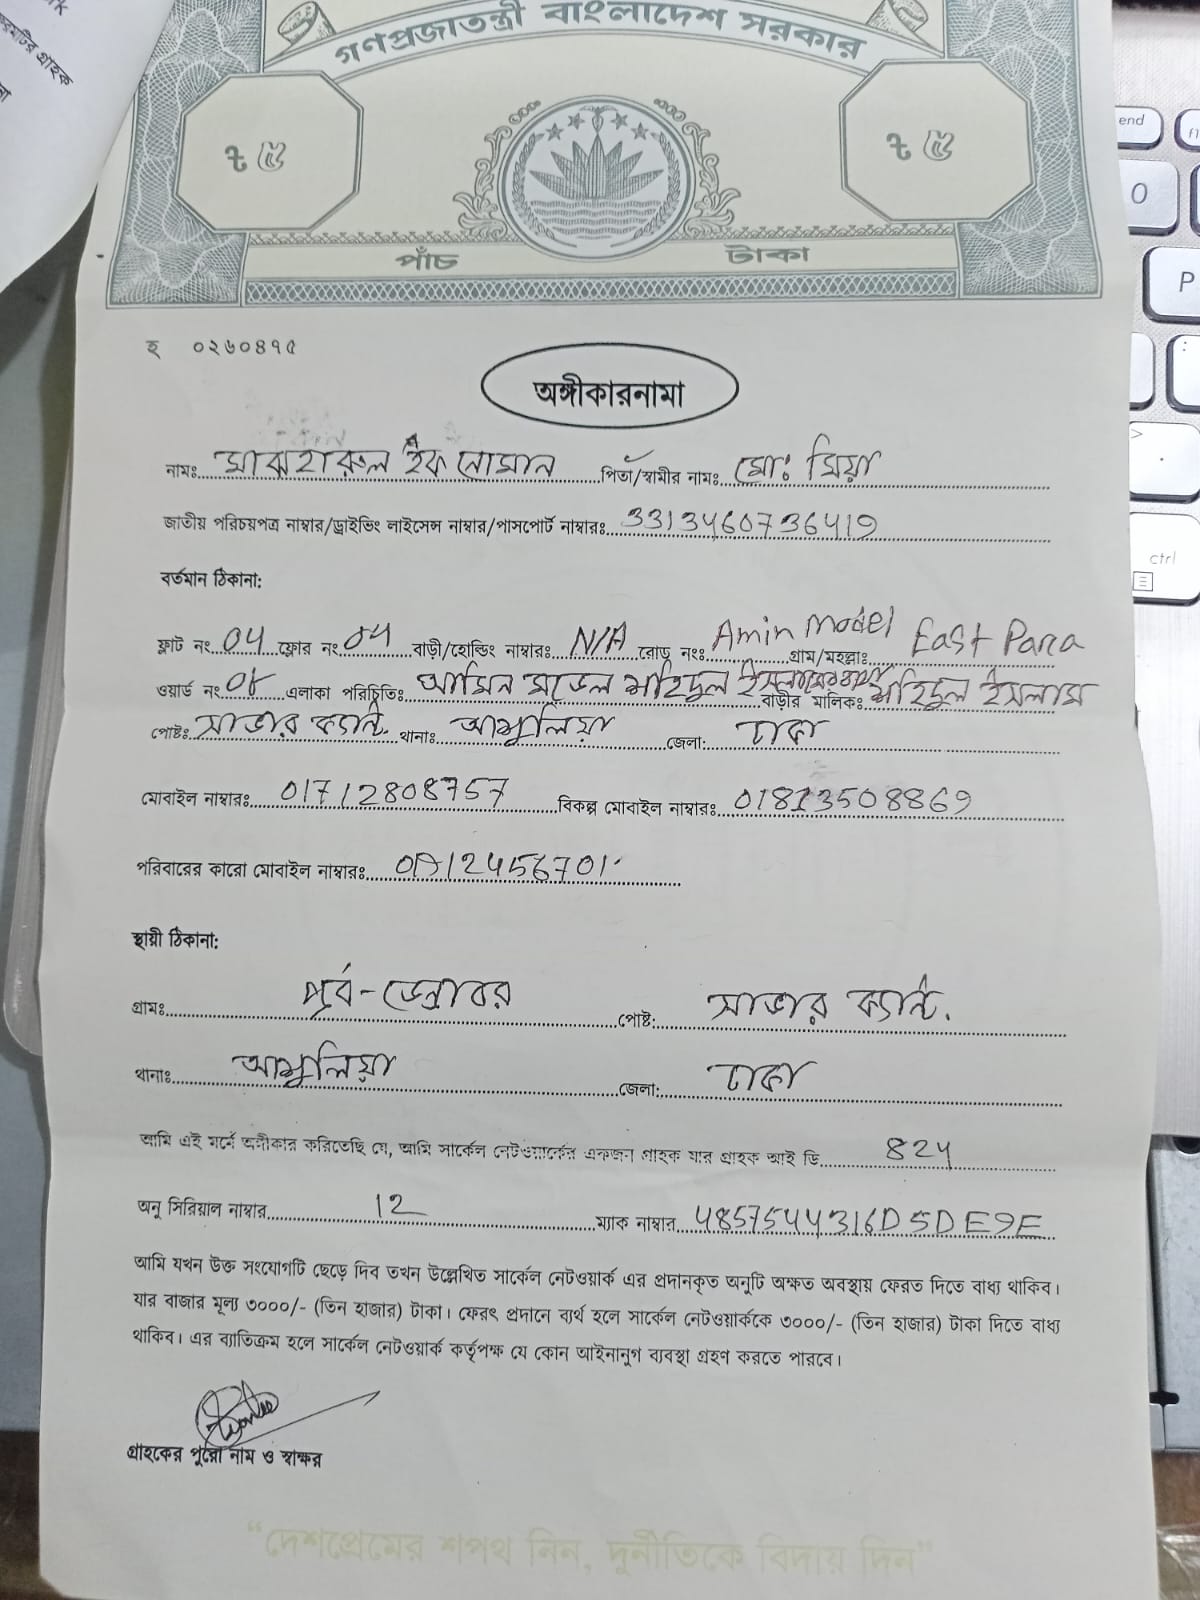 rk
গণপ্রজাতন্ত্রী বাংলাদেশ সরকার
৳ ৫ ৳ ৫
পাঁচ টাকা
হ ০২৬০৪৭৫
অঙ্গীকারনামা
নামঃ মাঝহারুল হক নোমান পিতা/স্বামীর নামঃ মো: মিয়া
জাতীয় পরিচয়পত্র নাম্বার/ড্রাইভিং লাইসেন্স নাম্বার/পাসপোর্ট নাম্বারঃ 3313460736419
বর্তমান ঠিকানা:
ফ্লাট নং 04 ফ্লোর নং 04 বাড়ী/হোল্ডিং নাম্বারঃ N/A রোড নংঃ Amin Model গ্রাম/মহল্লাঃ East Para
ওয়ার্ড নং 08 এলাকা পরিচিতিঃ আমিন মডেল শহিদুল ইসলামের বাড়ীর মালিকঃ শহিদুল ইসলাম
পোষ্টঃ সাভার ক্যান্ট. থানাঃ আশুলিয়া জেলা: ঢাকা
মোবাইল নাম্বারঃ 01712808757 বিকল্প মোবাইল নাম্বারঃ 01813508869
পরিবারের কারো মোবাইল নাম্বারঃ
স্থায়ী ঠিকানা:
গ্রামঃ পূর্ব-ডেন্ডাবর পোষ্ট: সাভার ক্যান্ট.
থানাঃ আশুলিয়া জেলা: ঢাকা
আমি এই মর্মে অঙ্গীকার করিতেছি যে, আমি সার্কেল নেটওয়ার্কের একজন গ্রাহক যার গ্রাহক আই ডি 824
অনু সিরিয়াল নাম্বার 12 ম্যাক নাম্বার 48575444316D5DE9E
আমি যখন উক্ত সংযোগটি ছেড়ে দিব তখন উল্লেখিত সার্কেল নেটওয়ার্ক এর প্রদানকৃত অনুটি অক্ষত অবস্থায় ফেরত দিতে বাধ্য থাকিব।
যার বাজার মূল্য ৩০০০/- (তিন হাজার) টাকা। ফেরৎ প্রদানে ব্যর্থ হলে সার্কেল নেটওয়ার্ককে ৩০০০/- (তিন হাজার) টাকা দিতে বাধ্য
থাকিব। এর ব্যতিক্রম হলে সার্কেল নেটওয়ার্ক কর্তৃপক্ষ যে কোন আইনানুগ ব্যবস্থা গ্রহণ করতে পারবে।
গ্রাহকের পুরো নাম ও স্বাক্ষর
“দেশপ্রেমের শপথ নিন, দুর্নীতিকে বিদায় দিন”
end
0
P
ctrl